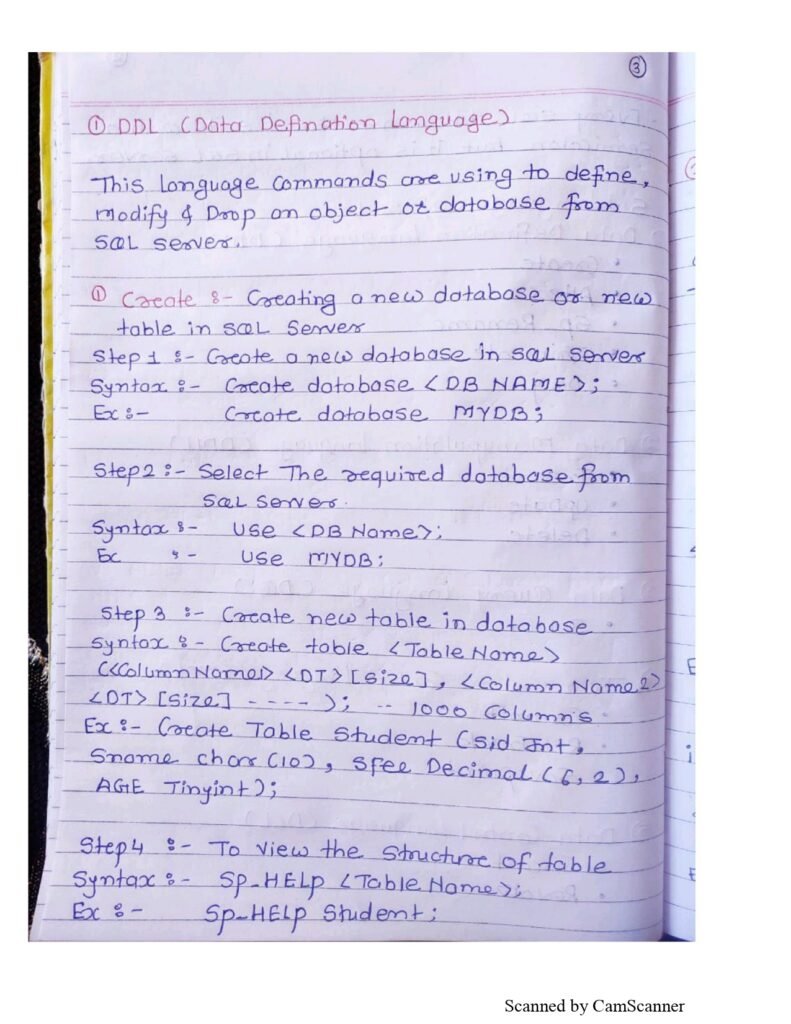 ③
① DDL (Data Defination Language)
This language commands are using to define,
modify & Drop an object or database from
SQL server.
① Create :- Creating a new database or new
table in SQL Server
Step 1 :- Create a new database in SQL server
Syntax :- Create database <DB NAME>;
Ex :- Create database MYDB;
Step2 :- Select The required database from
SQL server.
Syntax :- USE <DB Name>;
Ex :- USE MYDB;
Step 3 :- Create new table in database
Syntax :- Create table <Table Name>
(<Column Name1> <DT> [size], <Column Name2>
<DT> [size] ---- ); -- 1000 Columns
Ex :- Create Table Student (Sid Int,
Sname char (10), Sfee Decimal (6,2),
AGE Tinyint);
Step4 :- To view the structure of table
Syntax :- SP_HELP <Table Name>;
Ex :- SP_HELP Student;
Scanned by CamScanner